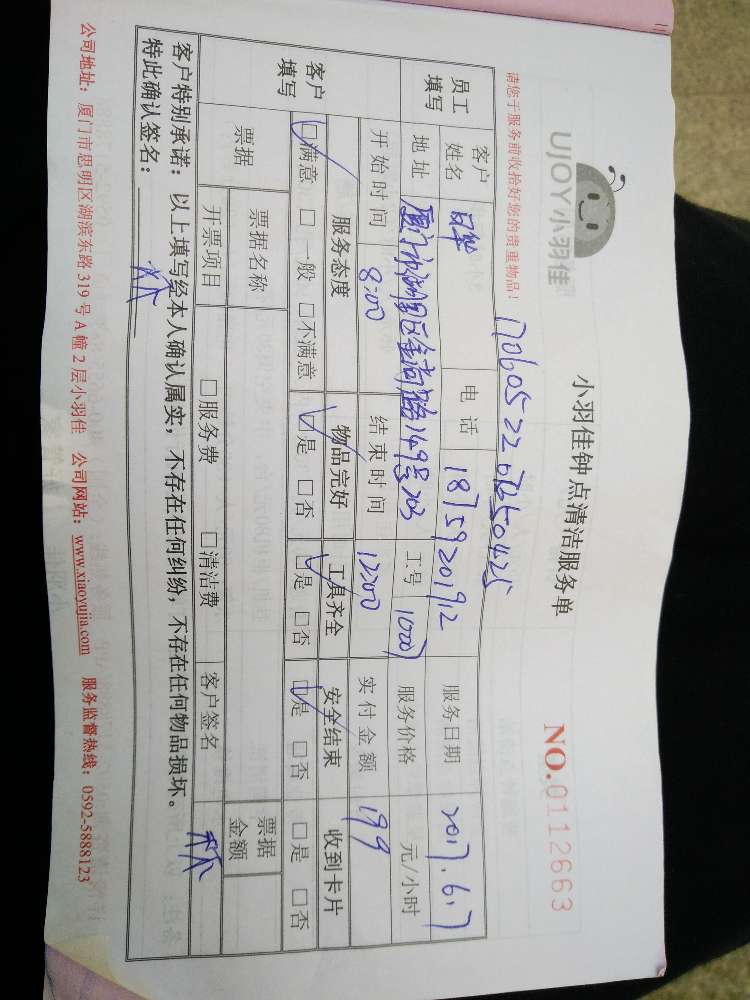 UJOY小羽佳
小羽佳钟点清洁服务单
NO.0112663
请您于服务前收拾好您的贵重物品!
员工填写 客户姓名 电话 18759201912 服务日期 2017.6.7
地址 厦门市湖里区金尚路149号703 工号 10007 服务价格 元/小时
开始时间 8:00 结束时间 12:00 实付金额 199
客户填写 服务态度 物品完好 工具齐全 安全结束 收到卡片
□满意 □一般 □不满意 □是 □否 □是 □否 □是 □否 □是 □否
票据 票据名称 票据金额
开票项目 □服务费 □清洁费 客户签名
客户特别承诺:以上填写经本人确认属实,不存在任何纠纷,不存在任何物品损坏。
特此确认签名:
公司地址:厦门市思明区湖滨东路319号A幢2层小羽佳 公司网站:www.xiaoyujia.com 服务监督热线:0592-5888123